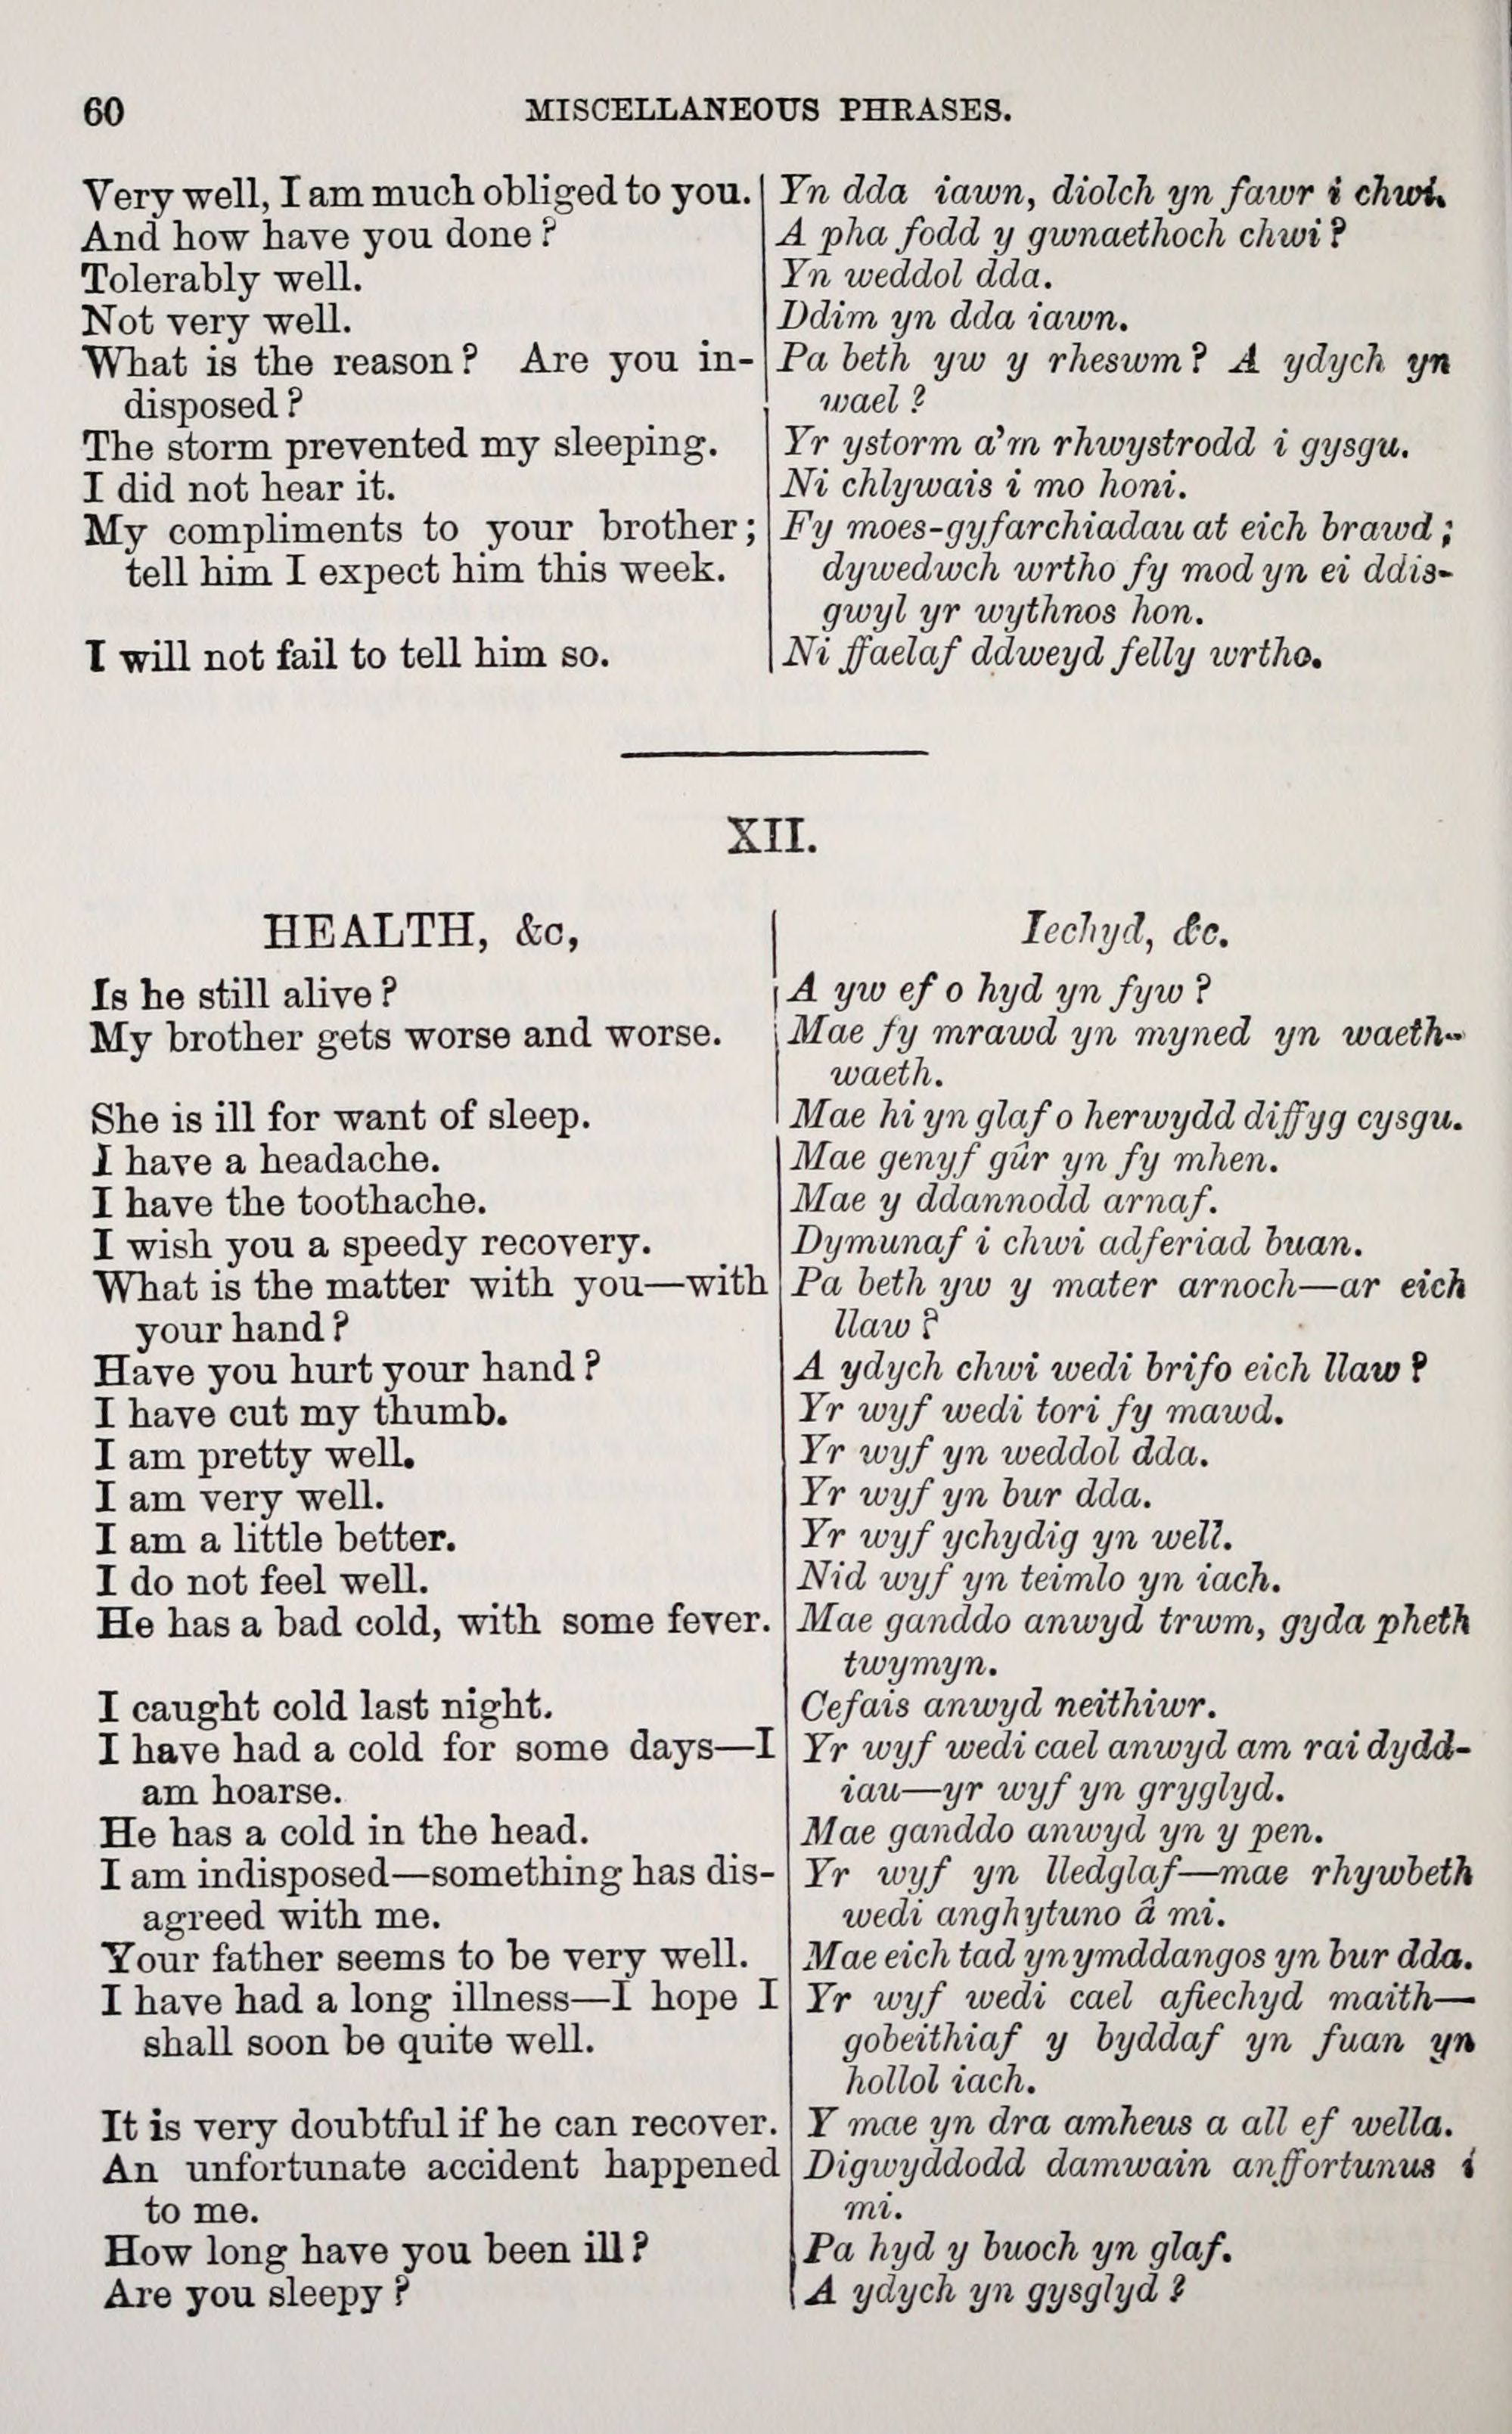 60
MISCELLANEOUS PHRASES.
Very well, I am much obliged to you.
And how have you done?
Tolerably well.
Not very well.
What is the reason? Are you in-
disposed?
The storm prevented my sleeping.
I did not hear it.
My compliments to your brother;
tell him I expect him this week.
I will not fail to tell him so.
Yn dda iawn, diolch yn fawr i chwi.
A pha fodd y gwnaethoch chwi?
Yn weddol dda.
Ddim yn dda iawn.
Pa beth yw y rheswm? A ydych yn
wael?
Yr ystorm a'm rhwystrodd i gysgu.
Ni chlywais i mo honi.
Fy moes-gyfarchiadau at eich brawd;
dywedwch wrtho fy mod yn ei ddis-
gwyl yr wythnos hon.
Ni ffaelaf ddweyd felly wrtho.
XII.
HEALTH, &c,
Is he still alive?
My brother gets worse and worse.
She is ill for want of sleep.
I have a headache.
I have the toothache.
I wish you a speedy recovery.
What is the matter with you—with
your hand?
Have you hurt your hand?
I have cut my thumb.
I am pretty well.
I am very well.
I am a little better.
I do not feel well.
He has a bad cold, with some fever.
I caught cold last night.
I have had a cold for some days—I
am hoarse.
He has a cold in the head.
I am indisposed—something has dis-
agreed with me.
Your father seems to be very well.
I have had a long illness—I hope I
shall soon be quite well.
It is very doubtful if he can recover.
An unfortunate accident happened
to me.
How long have you been ill?
Are you sleepy?
Iechyd, &c.
A yw ef o hyd yn fyw?
Mae fy mrawd yn myned yn waeth-
waeth.
Mae hi yn glaf o herwydd diffyg cysgu.
Mae genyf gûr yn fy mhen.
Mae y ddannodd arnaf.
Dymunaf i chwi adferiad buan.
Pa beth yw y mater arnoch—ar eich
llaw?
A ydych chwi wedi brifo eich llaw?
Yr wyf wedi tori fy mawd.
Yr wyf yn weddol dda.
Yr wyf yn bur dda.
Yr wyf ychydig yn well.
Nid wyf yn teimlo yn iach.
Mae ganddo anwyd trwm, gyda pheth
twymyn.
Cefais anwyd neithiwr.
Yr wyf wedi cael anwyd am rai dydd-
iau—yr wyf yn gryglyd.
Mae ganddo anwyd yn y pen.
Yr wyf yn lledglaf—mae rhywbeth
wedi anghytuno â mi.
Mae eich tad yn ymddangos yn bur dda.
Yr wyf wedi cael afiechyd maith—
gobeithiaf y byddaf yn fuan yn
hollol iach.
Y mae yn dra amheus a all ef wella.
Digwyddodd damwain anffortunus i
mi.
Pa hyd y buoch yn glaf.
A ydych yn gysglyd?